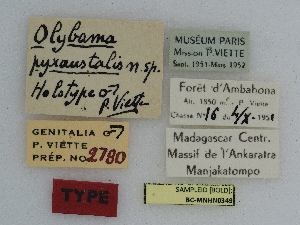 Olybama
pyraustalis n. sp.
Holotype ♂
P. Viette
MUSÉUM PARIS
Mission P. VIETTE
Sept. 1951-Mars 1952
Forêt d'Ambahona
Alt. 1850 m. P. Viette
Chasse No 16 du 4/X - 1951
GENITALIA ♂
P. VIETTE
PRÉP. NO. 2780
Madagascar Centr.
Massif de l'Ankaratra
Manjakatompo
TYPE
SAMPLEID [BOLD]:
BC-MNHN0348